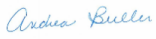 Andrea Buller